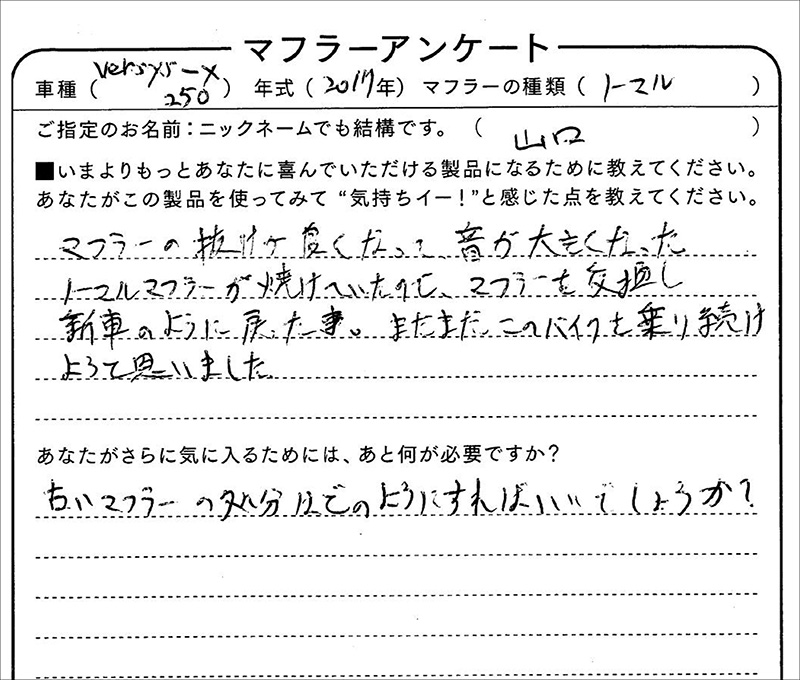 マフラーアンケート
車種（versys-x 250）年式（2017年）マフラーの種類（ノーマル）
ご指定のお名前：ニックネームでも結構です。（山口）
■いまよりもっとあなたに喜んでいただける製品になるために教えてください。
あなたがこの製品を使ってみて“気持ちイー！”と感じた点を教えてください。
マフラーの抜けが良くなって、音が大きくなった
ノーマルマフラーが焼けていたので、マフラーを交換し
新車のように戻った事。まだまだこのバイクを乗り続け
ようて思いました
あなたがさらに気に入るためには、あと何が必要ですか？
古いマフラーの処分はどのようにすればいいでしょうか？